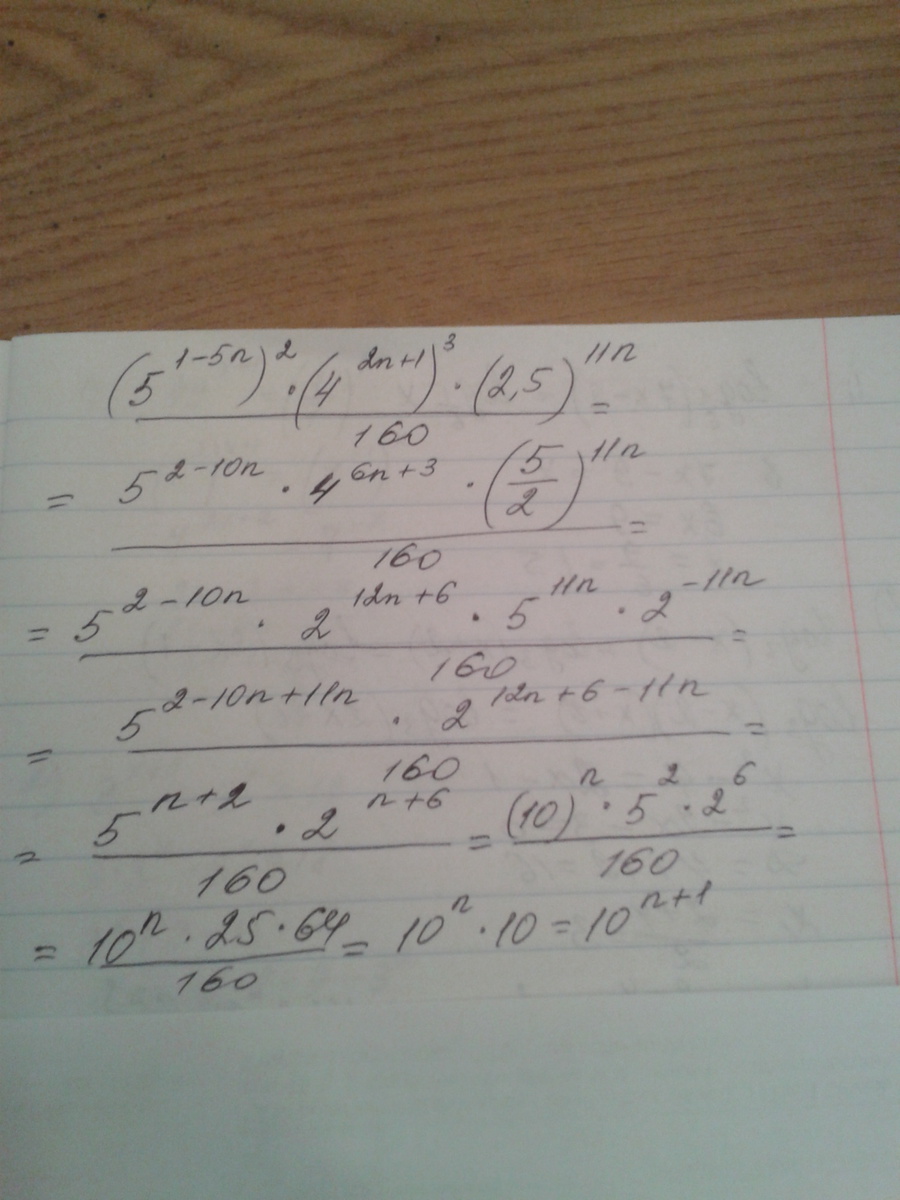 (5^(1-5n))^2 · (4^(2n+1))^3 · (2,5)^(11n) / 160 =
= 5^(2-10n) · 4^(6n+3) · (5/2)^(11n) / 160 =
= 5^(2-10n) · 2^(12n+6) · 5^(11n) · 2^(-11n) / 160 =
= 5^(2-10n+11n) · 2^(12n+6-11n) / 160 =
= 5^(n+2) · 2^(n+6) / 160 = (10)^n · 5^2 · 2^6 / 160 =
= 10^n · 25 · 64 / 160 = 10^n · 10 = 10^(n+1)